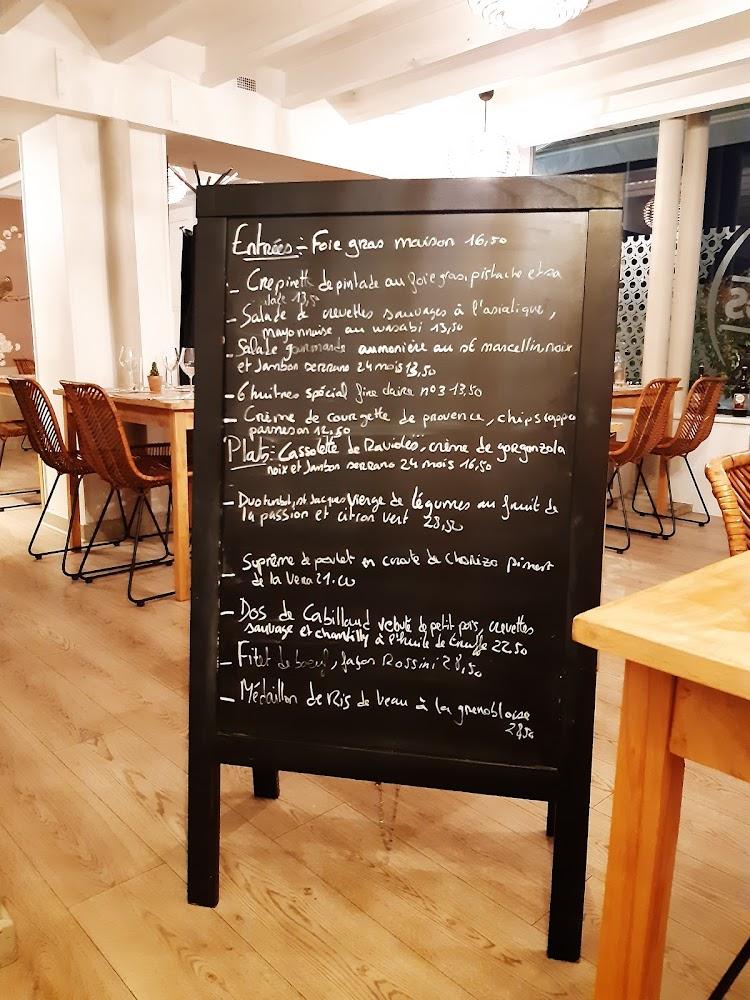 Entrées :- Foie gras maison 16,50
- Crepinette de pintade au foie gras, pistache et sa
salade 13,50
- Salade de crevettes sauvages à l'asiatique,
mayonnaise au wasabi 13,50
- Salade gourmande aumonière au st marcellin, noix
et Jambon serrano 24 mois 13,50
- 6 huitres spécial fine claire n°3 13,50
- Crème de courgette de provence, chips
parmesan 12,50
Plats :- Cassolette de Ravioles, crème de gorgonzola
noix et Jambon serrano 24 mois 16,50
- Duo turbot, st Jacques Vierge de légumes au fruit de
la passion et citron vert 23,50
- Suprême de poulet en croute de Chorizo piment
de la Vera 21.00
- Dos de Cabillaud velouté de petit pois, crevettes
sauvage et chantilly à l'huile de truffe 22.50
- Filet de boeuf, façon Rossini 28,50
- Médaillon de Ris de veau à la grenobloise
28,50